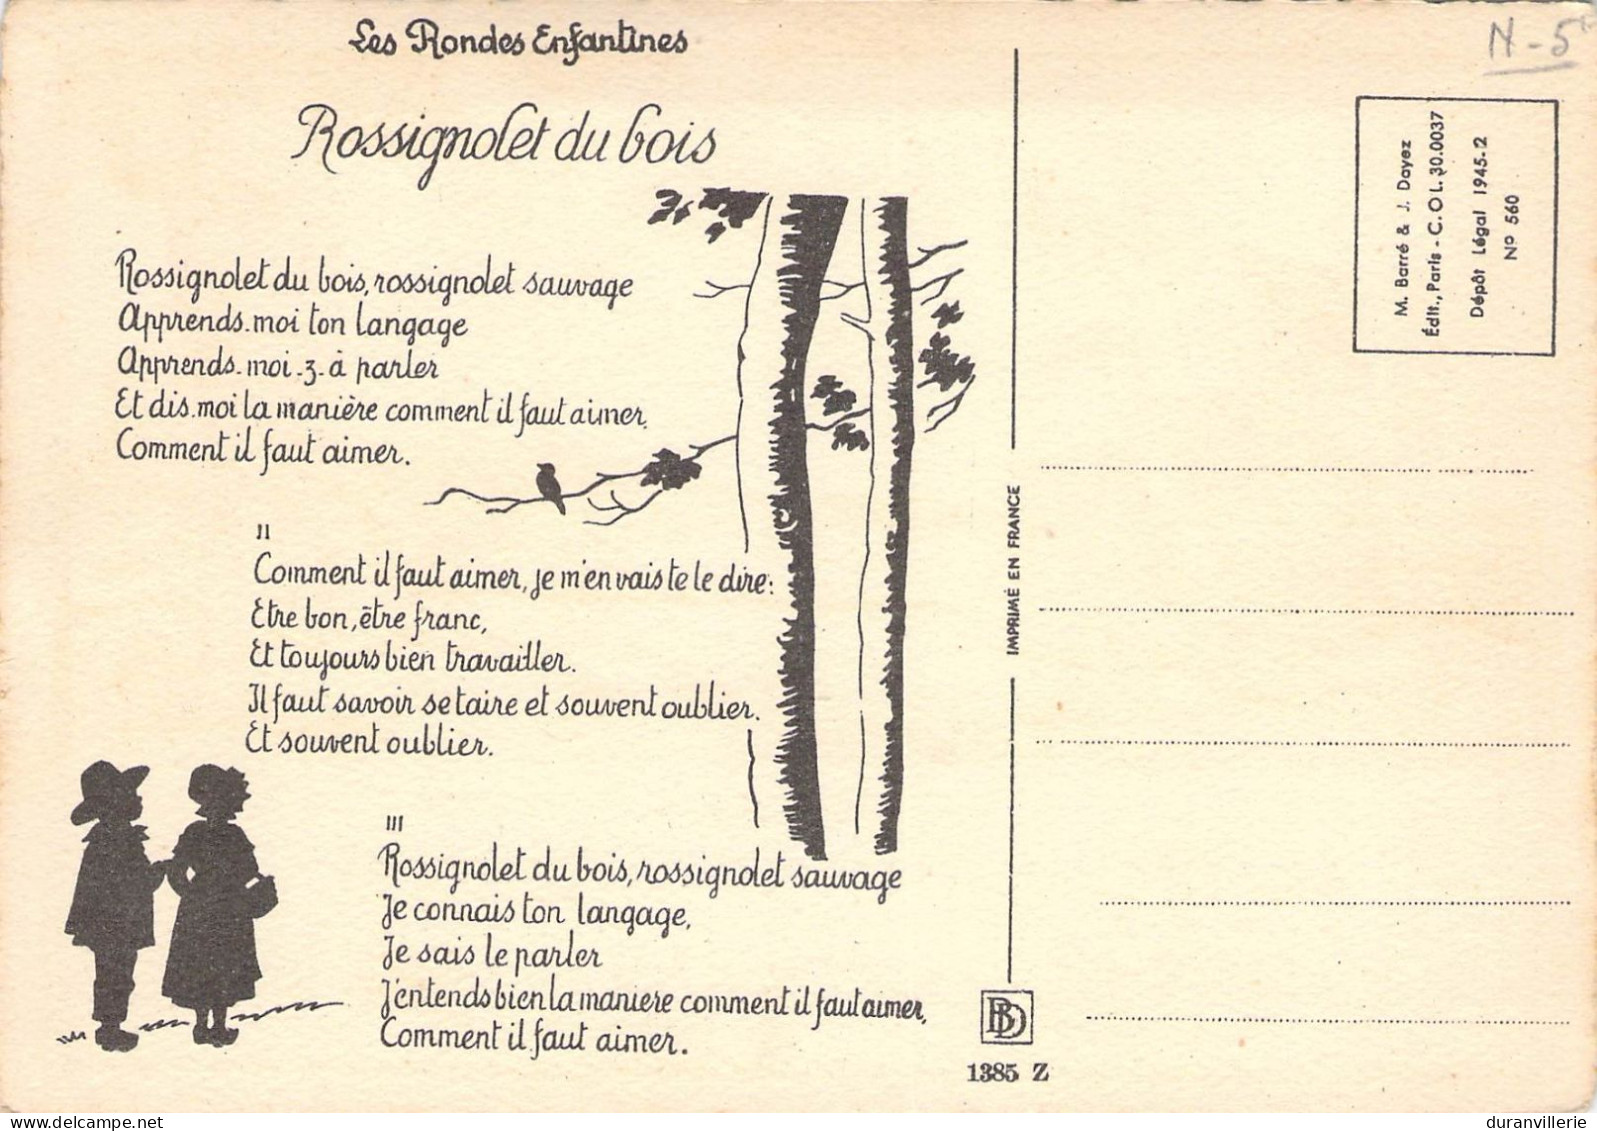 Les Rondes Enfantines
Rossignolet du bois
Rossignolet du bois, rossignolet sauvage
Apprends-moi ton langage
Apprends-moi-z-à parler
Et dis-moi la manière comment il faut aimer,
Comment il faut aimer.
II
Comment il faut aimer, je m'en vais te le dire:
Etre bon, être franc,
Et toujours bien travailler.
Il faut savoir se taire et souvent oublier.
Et souvent oublier.
III
Rossignolet du bois, rossignolet sauvage
Je connais ton langage,
Je sais le parler
J'entends bien la maniere comment il faut aimer,
Comment il faut aimer.
IMPRIMÉ EN FRANCE
BD
1385 Z
N-5
M. Barré & J. Dayez
Édit., Paris - C.O.L. 30.0037
Dépôt Légal 1945-2
Nº 560
duranvillerie